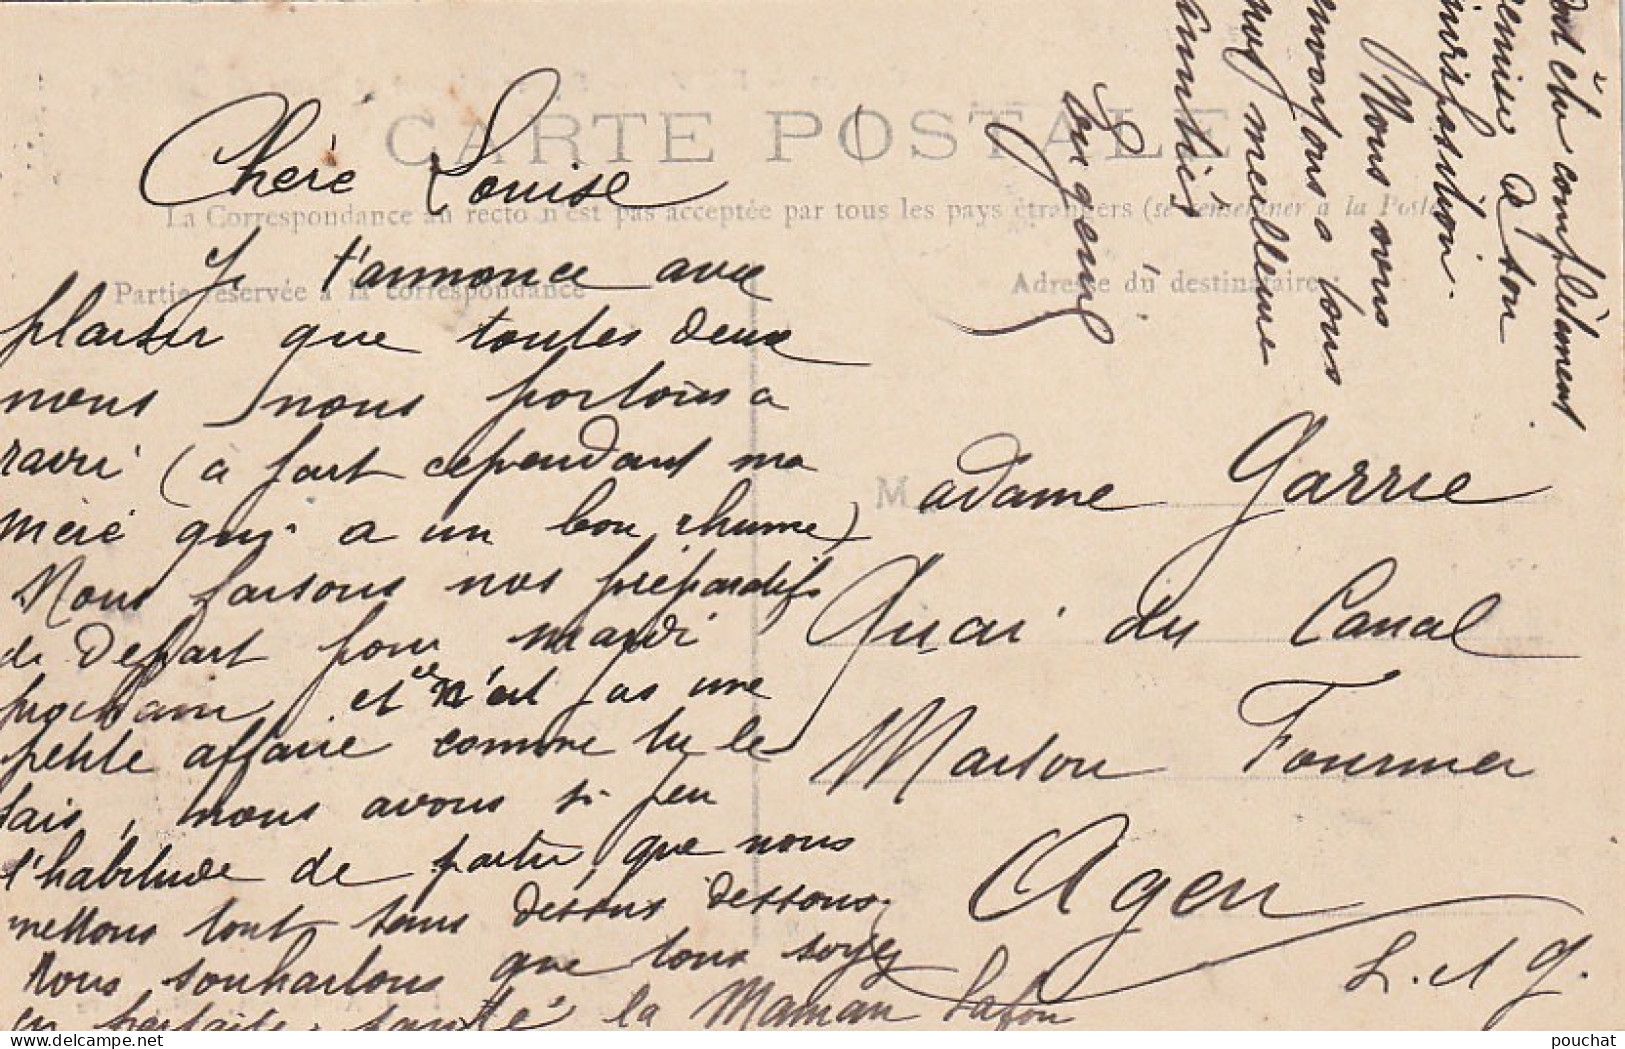 CARTE POSTALE
La Correspondance au recto n'est pas acceptée par tous les pays étrangers (se renseigner à la Poste
Partie réservée à la correspondance
Adresse du destinataire
Chère Louise
Je t'annonce avec
plaisir que toutes deux
nous nous portons a
ravir (a part cependant ma
mère qui a un bon rhume)
Nous faisons nos préparatifs
de Depart pour mardi
prochain et ce n'est pas une
petite affaire comme tu le
sais, nous avons si peu
l'habitude de partir, que nous
mettons tout sens dessus dessous,
Nous souhaitons que tous soyez
en parfaite santé la Maman Lafon
doit être complètement
remise a ton
Nous vous
envoyons a tous
nos meilleures
amitiés
Eugenie
Madame Garrie
Quai du Canal
Maison Fournier
Agen
L. et G.
© pouchat
www.delcampe.net